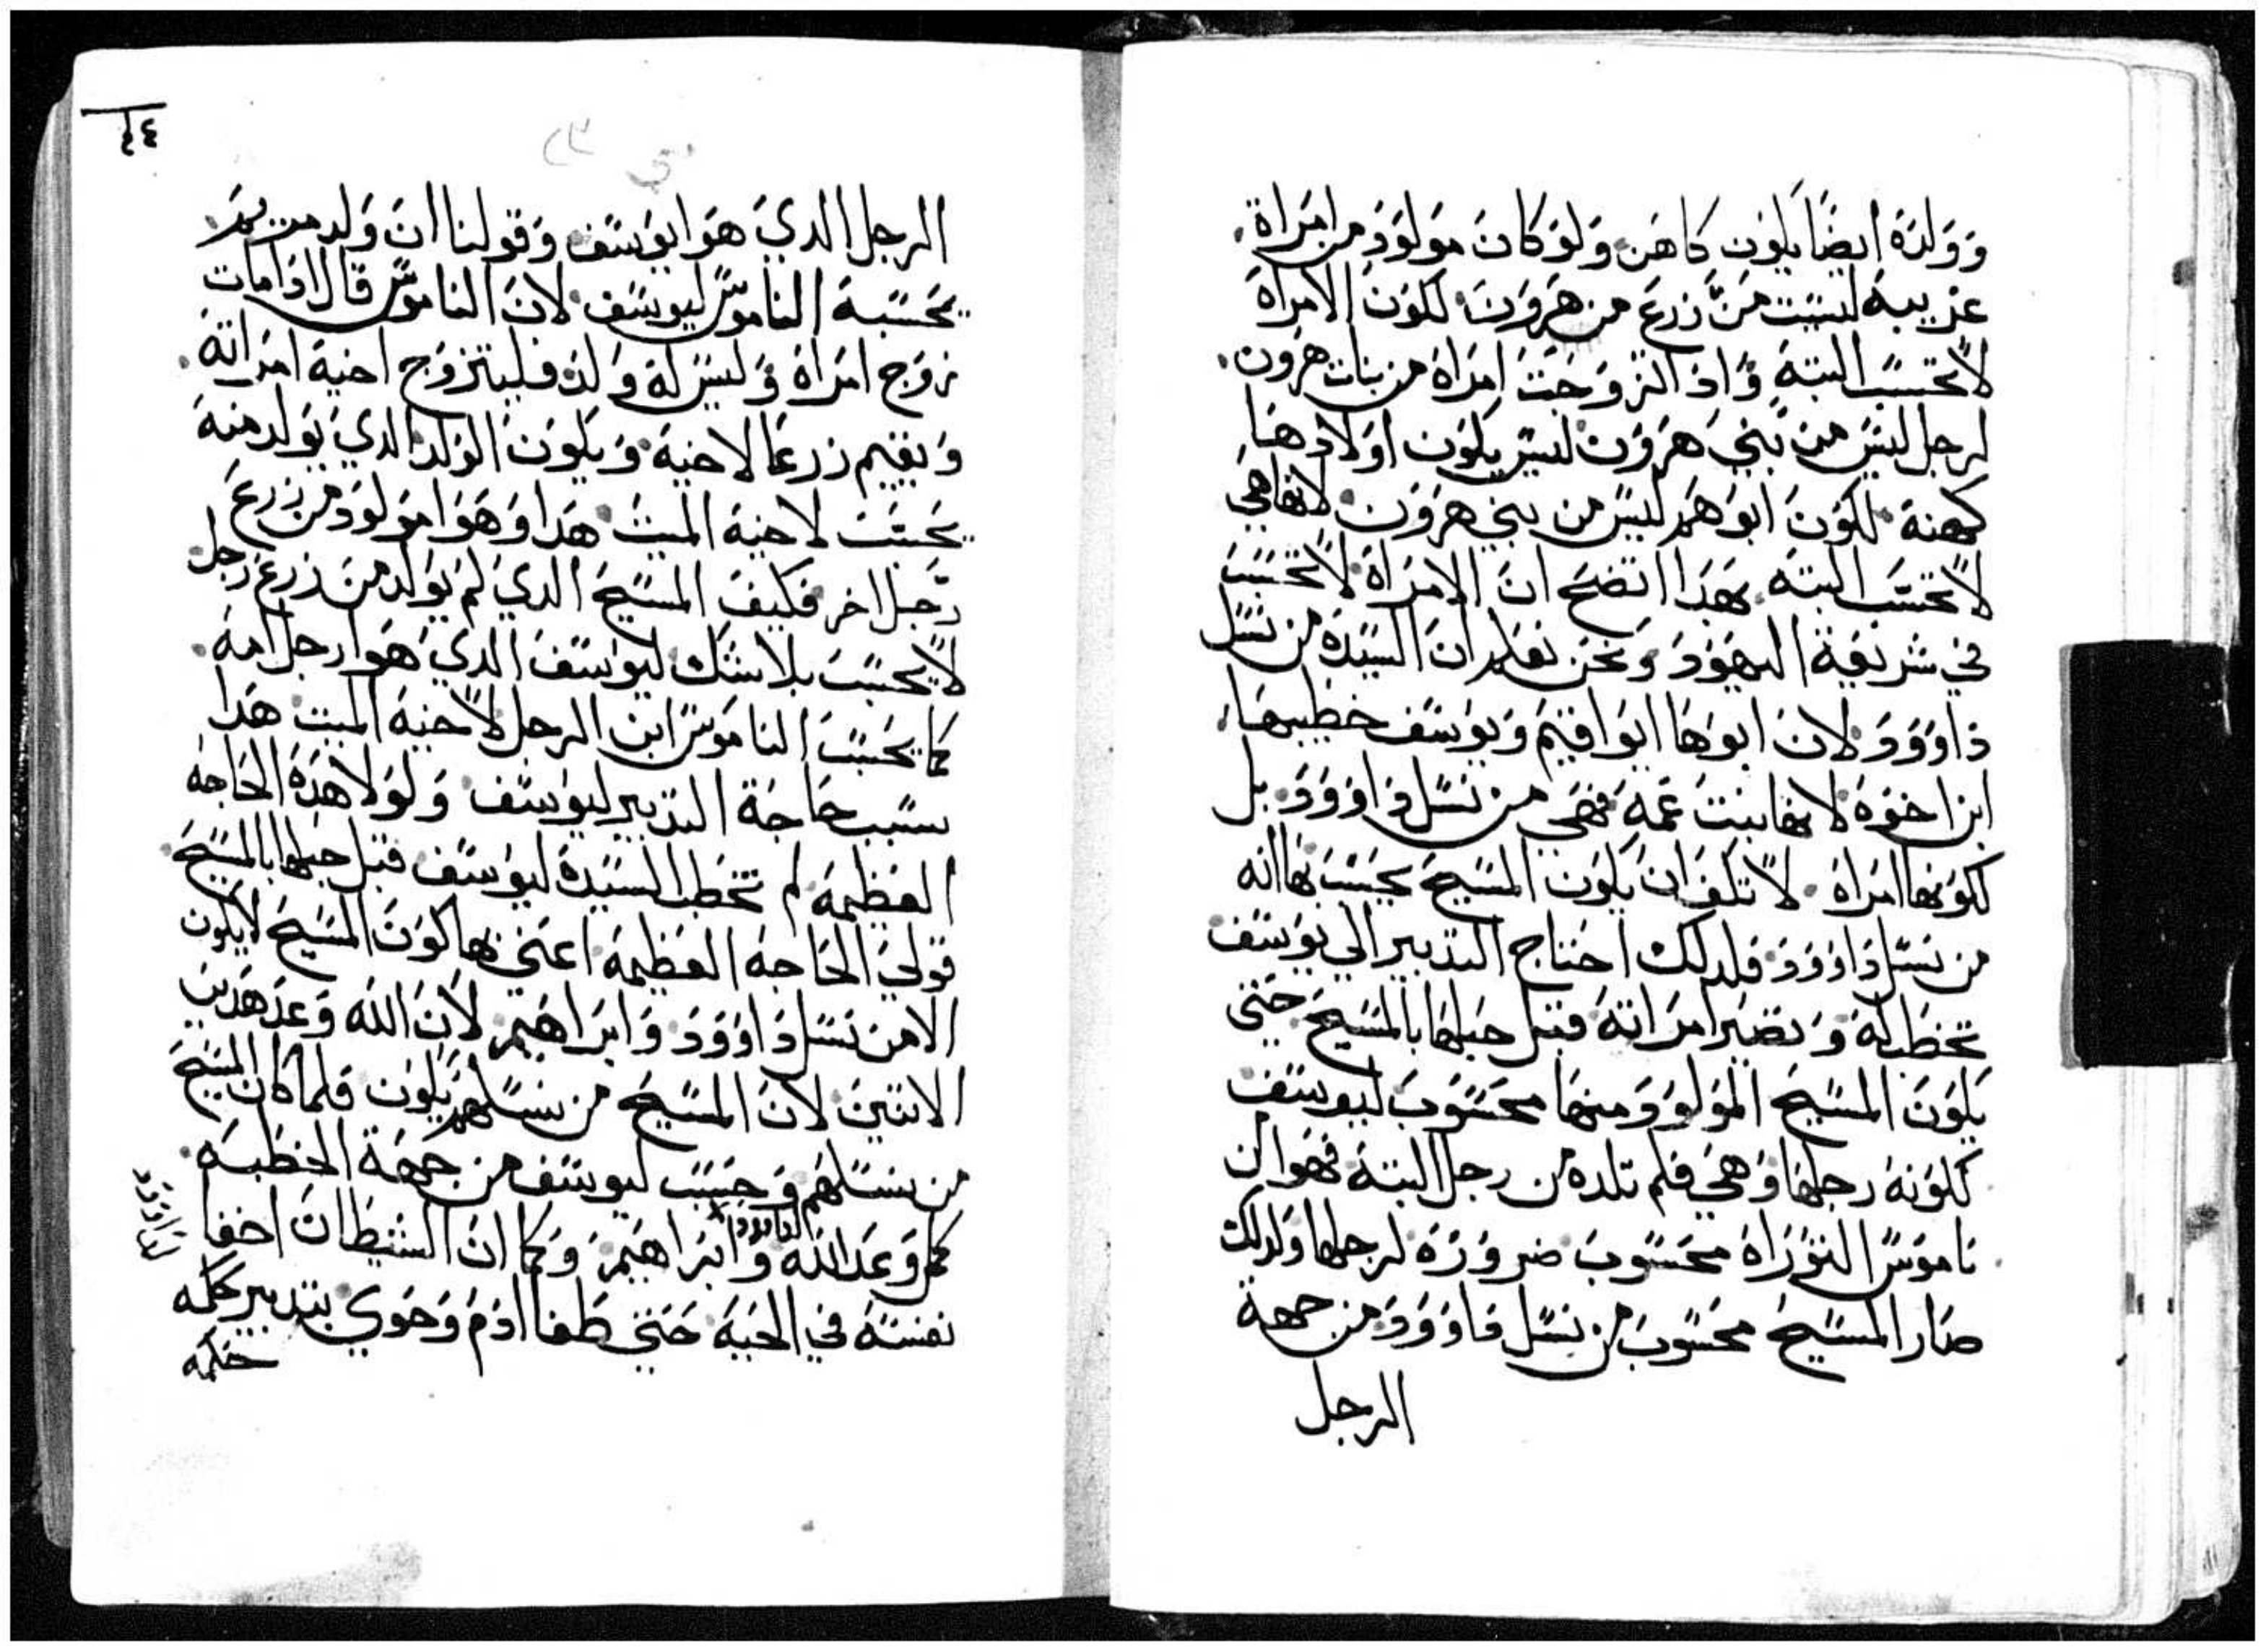 وولده ايضا يكون كاهن ولو كان مولود من امراة
غريبة ليست من زرع هرون لكون الامراة
لا تحسب البتة واذا تزوجت امراة من بنات هرون
لرجل ليس من بني هرون ليس يكون اولادها
كهنة لكون ابوهم ليس من بني هرون لانها هي
لا تحتسب البتة بهذا اتضح ان الامراة لا تحتسب
في شريعة اليهود ونحن نعلم ان السيدة من نسل
داوود لان ابوها ايواقيم ويوسف خطيبها
ابن اخوه لانها بنت عمه فهي من نسل داوود بل
لكونها امراة لا تكف ان يكون المسيح يحسب بها انه
من نسل داوود فلدلك احتاج التدبير الي يوسف
تخطب له وتصير امراته قبل حبلها بالمسيح حتي
يكون المسيح المولود منها محسوب ليوسف
لكونه رجلها وهي فلم تلده من رجل البتة فهو ان
ناموس التوراة محسوب ضرورة لرجلها ولدلك
صار المسيح محسوب من نسل داوود من جهة
الرجل
٤٤
الرجل الدي هوا يوسف وقولنا ان ولد مريم
يحسبه الناموس ليوسف لان الناموس قال ادا مات
زوج امراة وليس له ولد فليتزوج اخيه امراته
ويقيم زرعا لاخيه ويكون الولد الدي يولد منه
يحسب لاخيه الميت هدا وهوا مولود من زرع
رجل اخر فكيف المسيح الدي لم يولد من زرع رجل
لا يحسب بلا شك ليوسف الدي هوا رجل امه
كما يحسب الناموس ابن الرجل لاخيه الميت هدا
بسبب حاجة التدبير ليوسف ولولا هده الحاجه
العظيمه لم تخطب السيدة ليوسف قبل حبلها بالمسيح
قولي الحاجه العظيمه اعني بها كون المسيح لا يكون
الا من نسل داوود وابراهيم لان الله وعد هدين
الاتنين لان المسيح من نسلهم يكون فلما كان المسيح
من نسلهم وحسب ليوسف من جهة الخطبه
كمل وعد الله وابراهيم وكما ان الشيطان اخفا
لداوود
نفسه في الحيه حتي طغا ادم وحوي بتدبير حكمه
حكمه